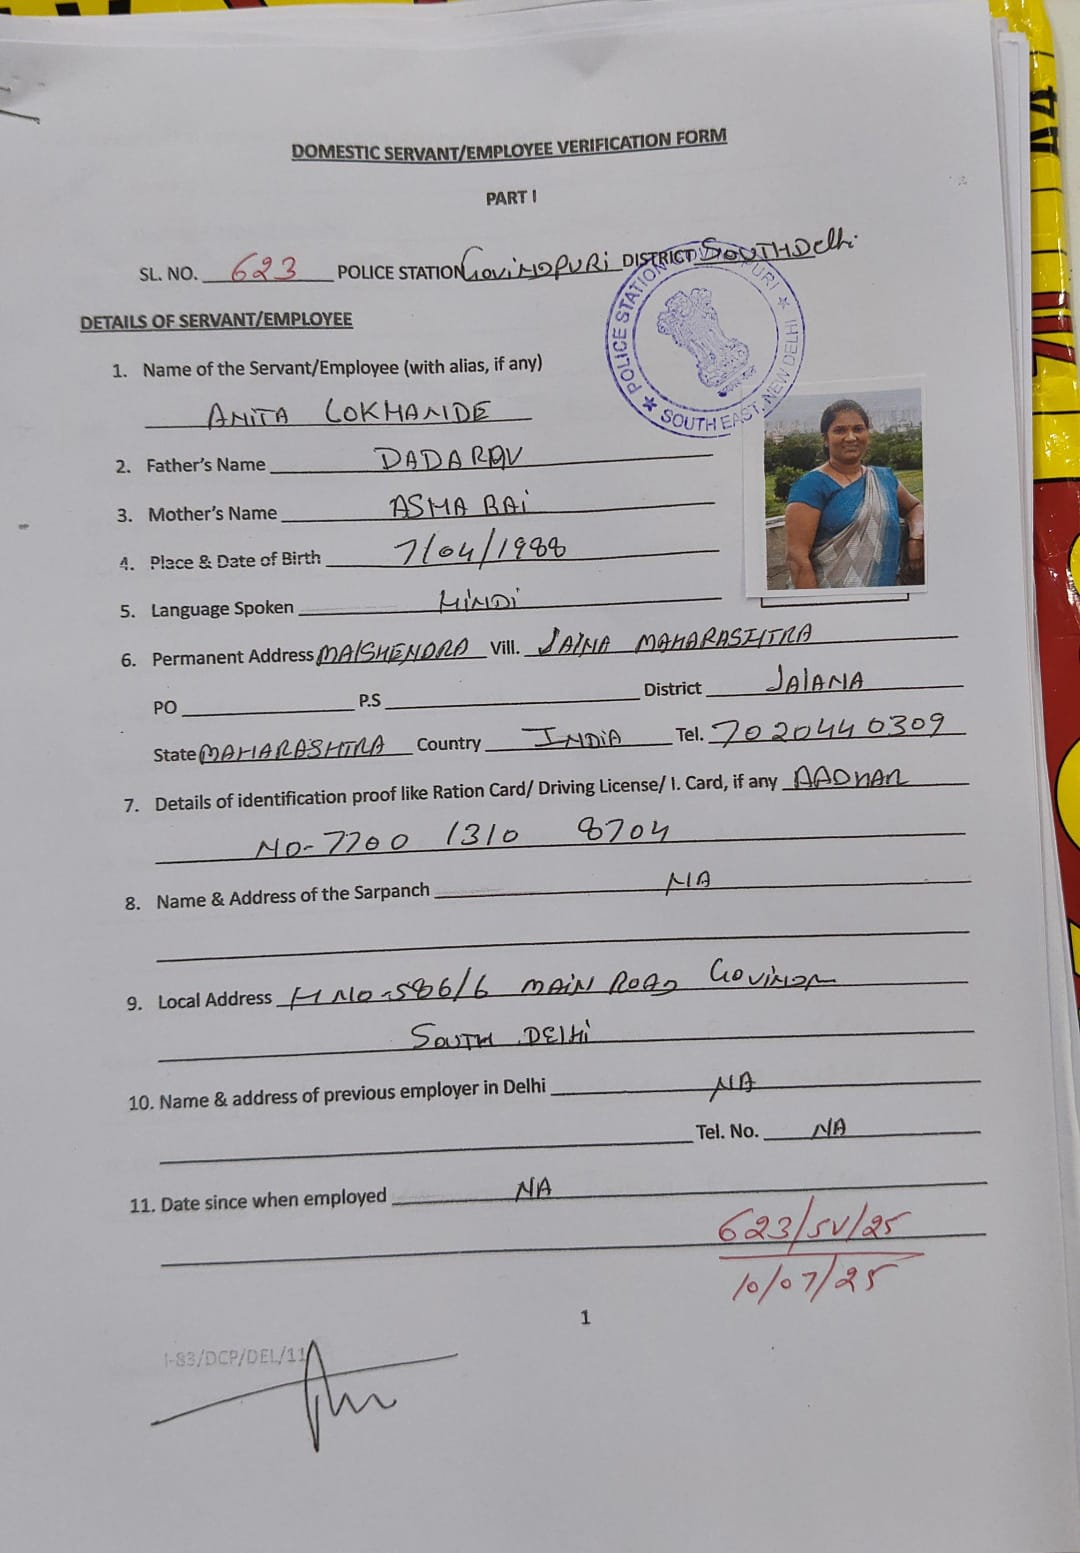 DOMESTIC SERVANT/EMPLOYEE VERIFICATION FORM
PART I
SL. NO. 623 POLICE STATION GOVINDPURI DISTRICT SOUTH Delhi
POLICE STATION GOVINDPURI SOUTH EAST, NEW DELHI
DETAILS OF SERVANT/EMPLOYEE
1. Name of the Servant/Employee (with alias, if any)
ANITA LOKHANDE
2. Father's Name DADARAV
3. Mother's Name ASHA BAI
4. Place & Date of Birth 7/04/1988
5. Language Spoken HINDI
6. Permanent Address MAISHENDRA Vill. JALNA MAHARASHTRA
PO P.S District JALANA
State MAHARASHTRA Country INDIA Tel. 7020440309
7. Details of identification proof like Ration Card/ Driving License/ I. Card, if any AADHAR
NO- 7700 1310 8704
8. Name & Address of the Sarpanch NA
9. Local Address H NO-586/6 MAIN ROAD
SOUTH DELHI
10. Name & address of previous employer in Delhi NA
Tel. No. NA
11. Date since when employed NA
623/SV/25
10/07/25
1
I-83/DCP/DEL/11